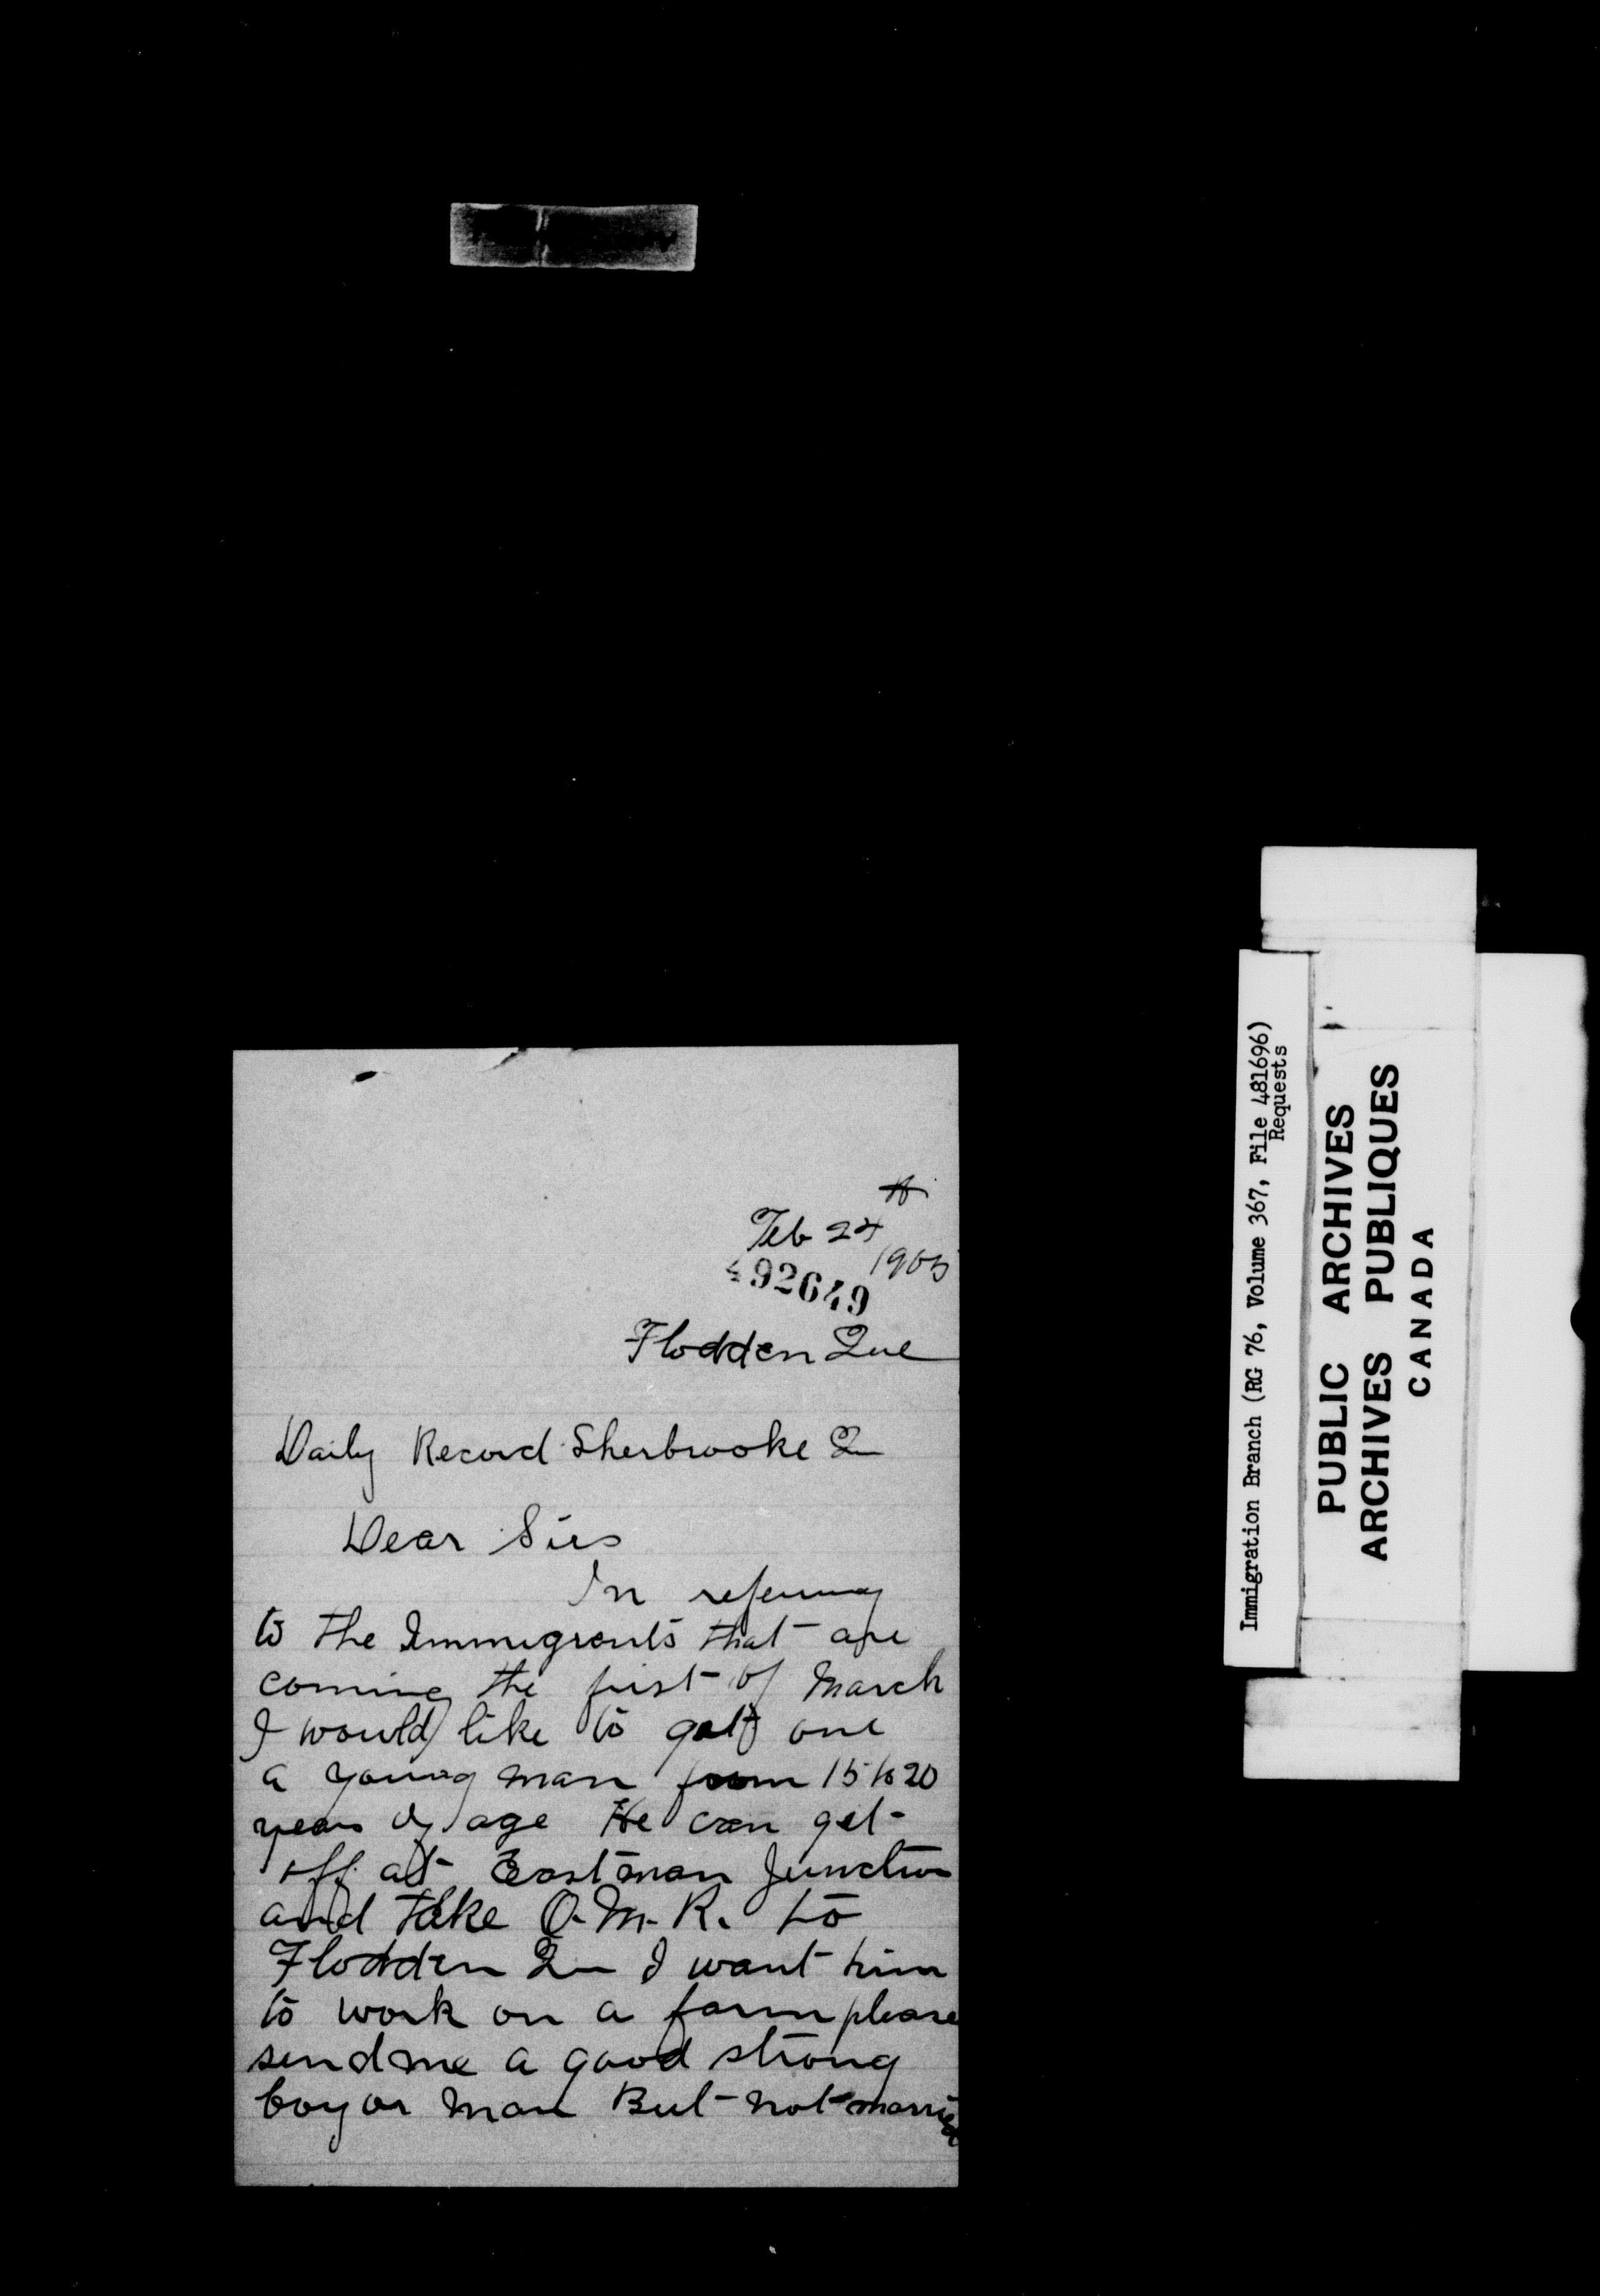 Feb 24
1905
492649
Flodden Que
Daily Record Sherbrooke Q
Dear Sirs
In referring
to the Immigrants that are
coming the first of March
I would like to get one
a young man from 15 to 20
years of age He can get
off at Eastman Junction
and take O.M.R. to
Flodden Qu I want him
to work on a farm please
send me a good strong
boy or man But not married
Immigration Branch (RG 76, Volume 367, File 481696)
Requests
PUBLIC ARCHIVES
ARCHIVES PUBLIQUES
CANADA